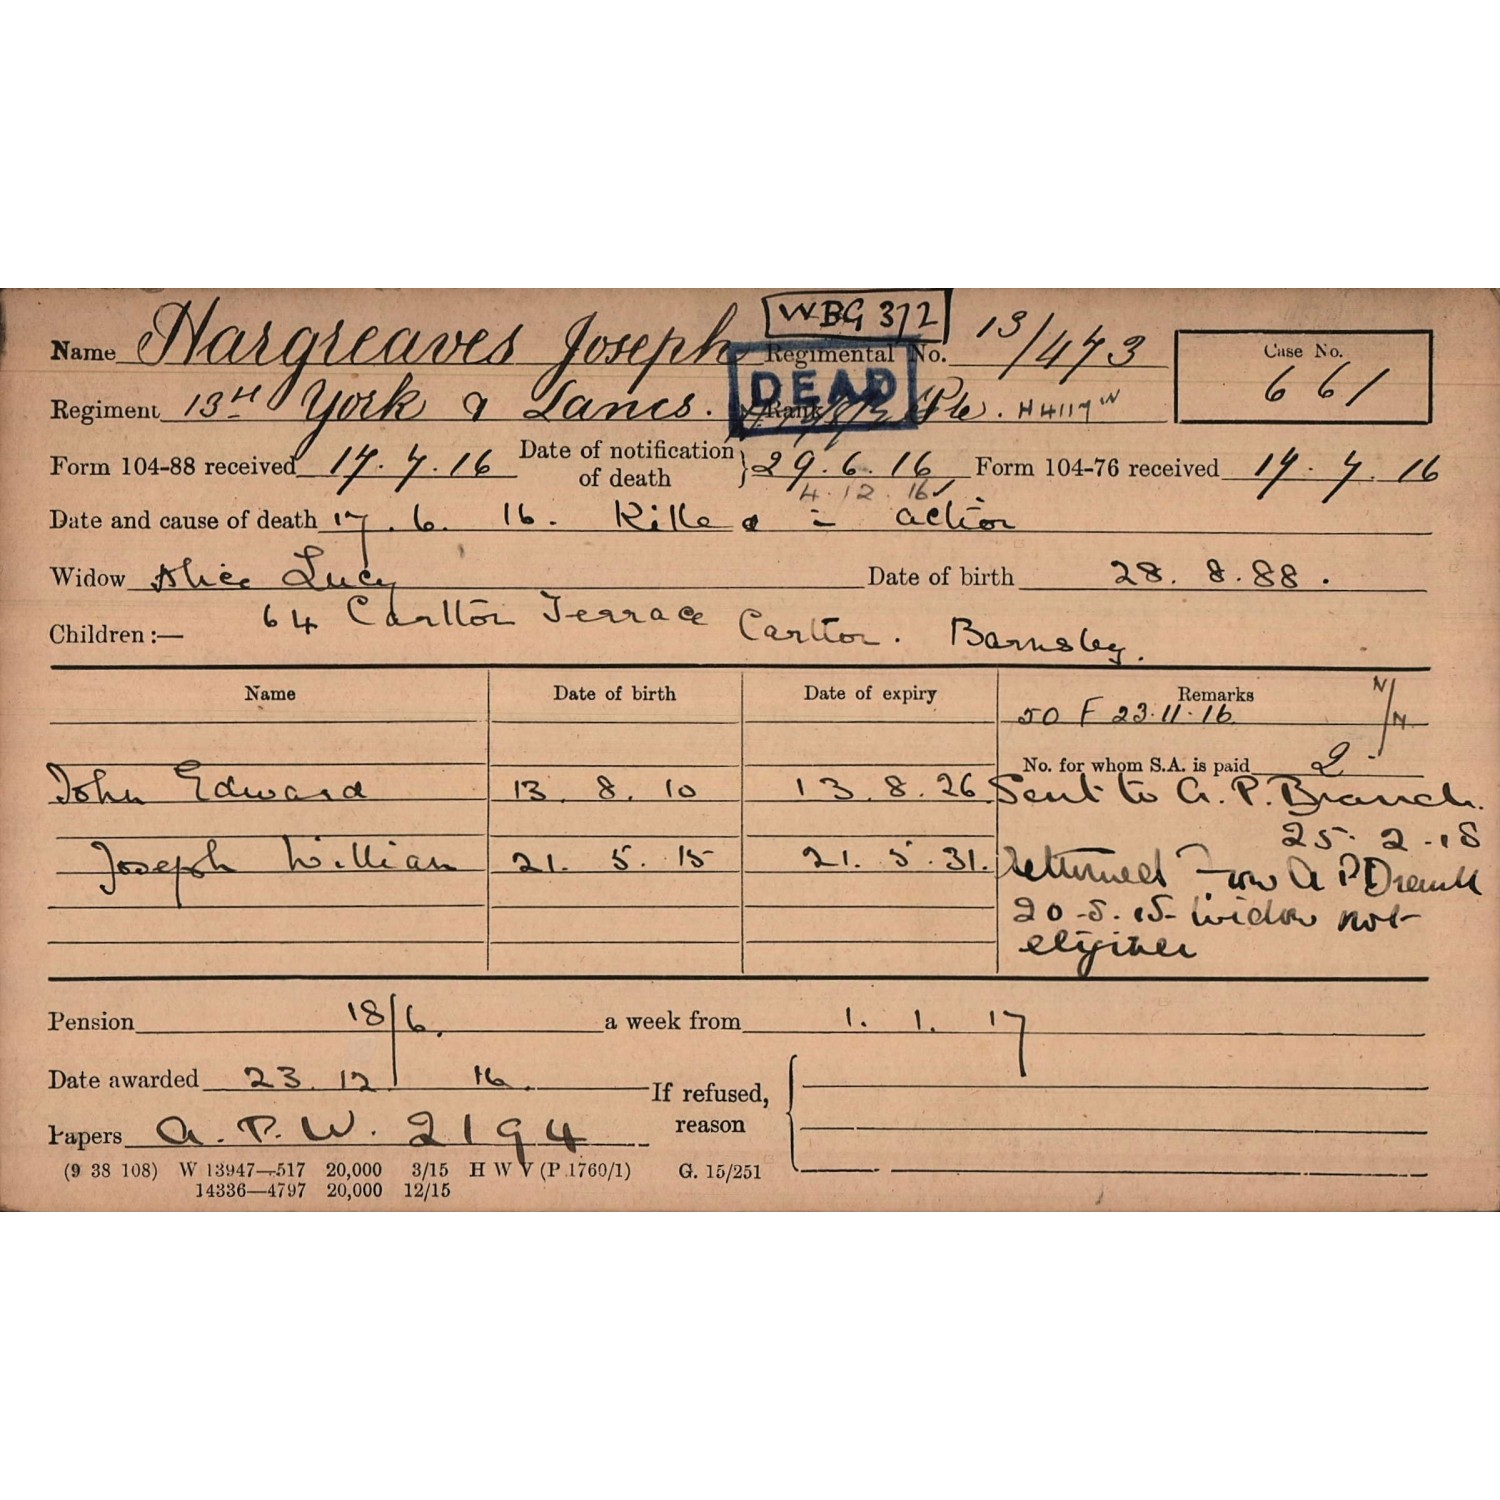 WBG 372
Name Hargreaves Joseph Regimental No. 13/473
DEAD
Case No.
661
Regiment 13th York & Lancs. Rank Pte. H4117W
Form 104-88 received 17.7.16 Date of notification of death } 29.6.16 Form 104-76 received 17.7.16
4.12.16
Date and cause of death 17.6.16. Killed in action
Widow Alice Lucy Date of birth 28.8.88.
64 Carlton Terrace Carlton. Barnsley.
Children :—
Name Date of birth Date of expiry Remarks
N/N
50 F 23.11.16
No. for whom S.A. is paid 2
John Edward 13.8.10 13.8.26. Sent to A.P. Branch.
25.2.18
Joseph William 21.5.15 21.5.31. returned from A P Branch
20-5-18 widow not
Pension 18/6. a week from 1.1.17
Date awarded 23.12.16.
If refused, reason
Papers A.P.W. 2194
(9 38 108) W 13947—517 20,000 3/15 H W V (P 1760/1) G. 15/251
14336—4797 20,000 12/15